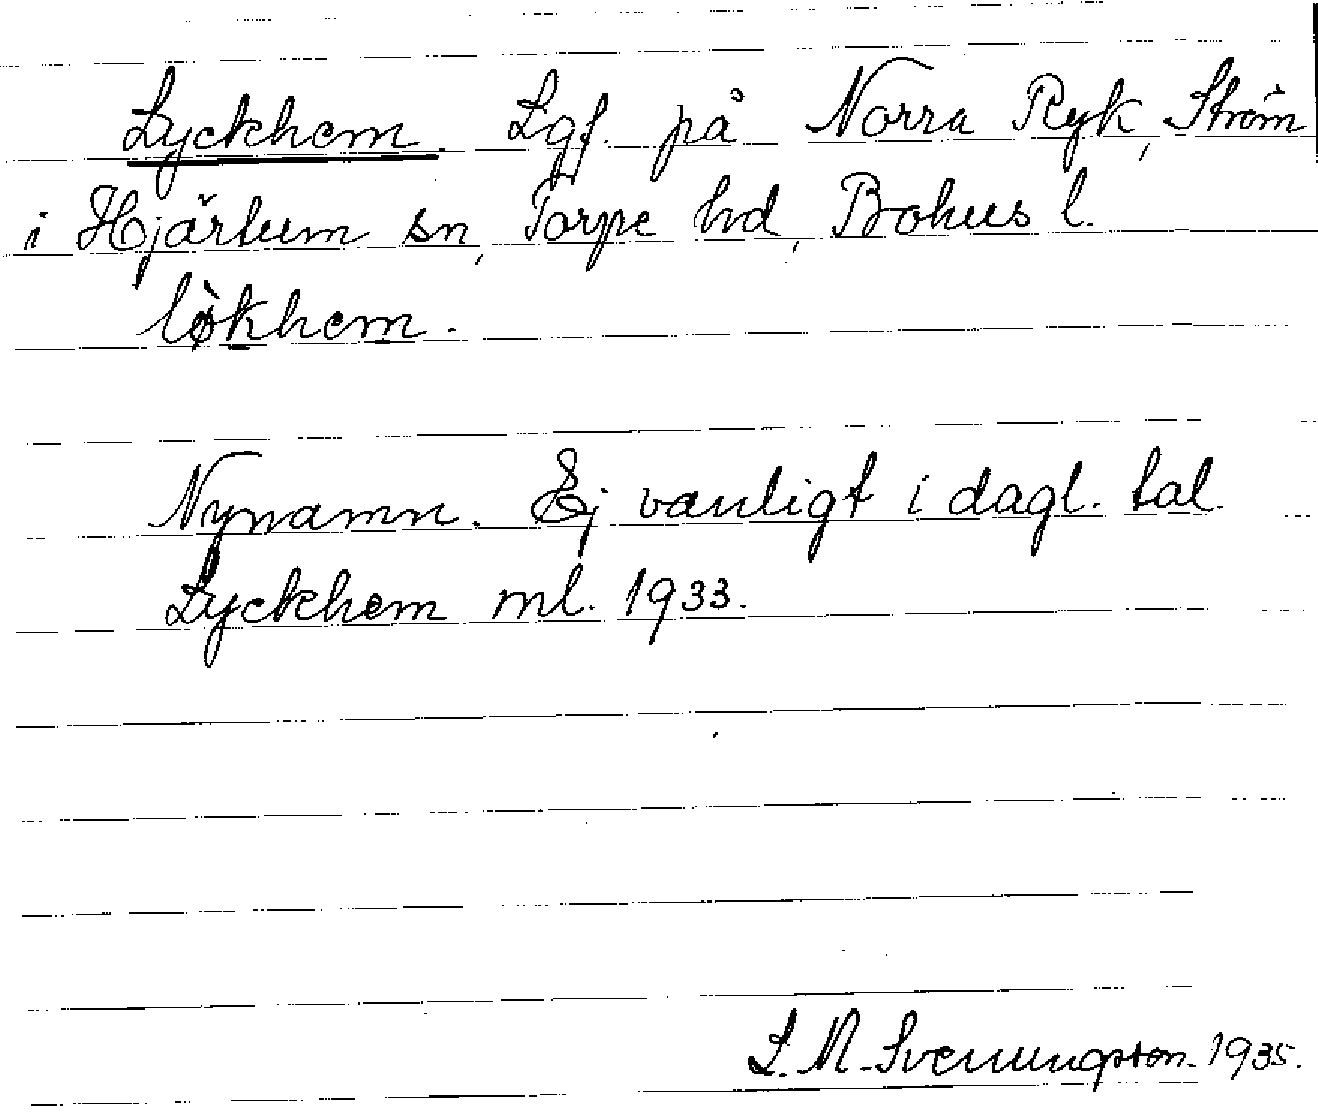 Lyckhem. Lgf. på Norra Ryk, Ström
i Hjärtum sn, Torpe hd, Bohus l.
lø̀khem.
Nynamn. Ej vanligt i dagl. tal.
Lyckhem ml. 1933.
S. M. Svenungsson. 1935.